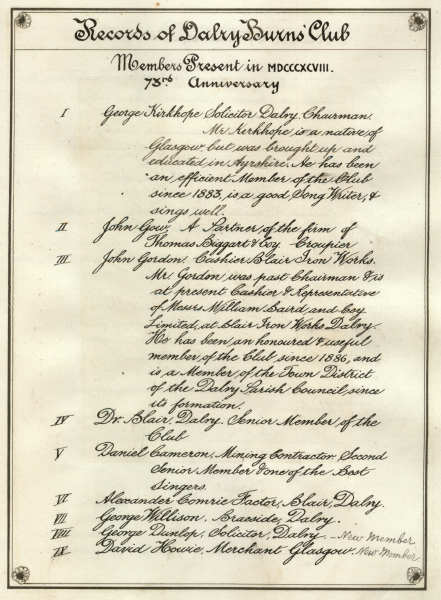 Records of Dalry Burns' Club
Members Present in MDCCCXCVIII.
73rd Anniversary
I George Kirkhope Solicitor Dalry. Chairman.
Mr. Kirkhope, is a native of
Glasgow, but was brought up and
educated in Ayrshire. He has been
an efficient Member of the Club
since 1883, is a good Song Writer, &
sings well.
II John Gow. A Partner, of the firm of
Thomas Biggart & Coy Croupier
III John Gordon. Cashier Blair Iron Works.
Mr. Gordon was past Chairman & is
at present Cashier & Representative
of Messrs William Baird and Coy
Limited, at Blair Iron Works Dalry.
He has been an honoured & useful
member, of the Club since 1886, and
is a Member of the Town District
of the Dalry Parish Council, since
its formation.
IV Dr. Blair, Dalry. Senior Member of the
Club
V Daniel Cameron, Mining Contractor. Second
Senior Member & one of the Best
Singers.
VI Alexander Comrie Factor, Blair, Dalry.
VII George Willison. Braeside, Dalry.
VIII George Dunlop, Solicitor, Dalry - New Member
IX David Howie, Merchant Glasgow. New Member